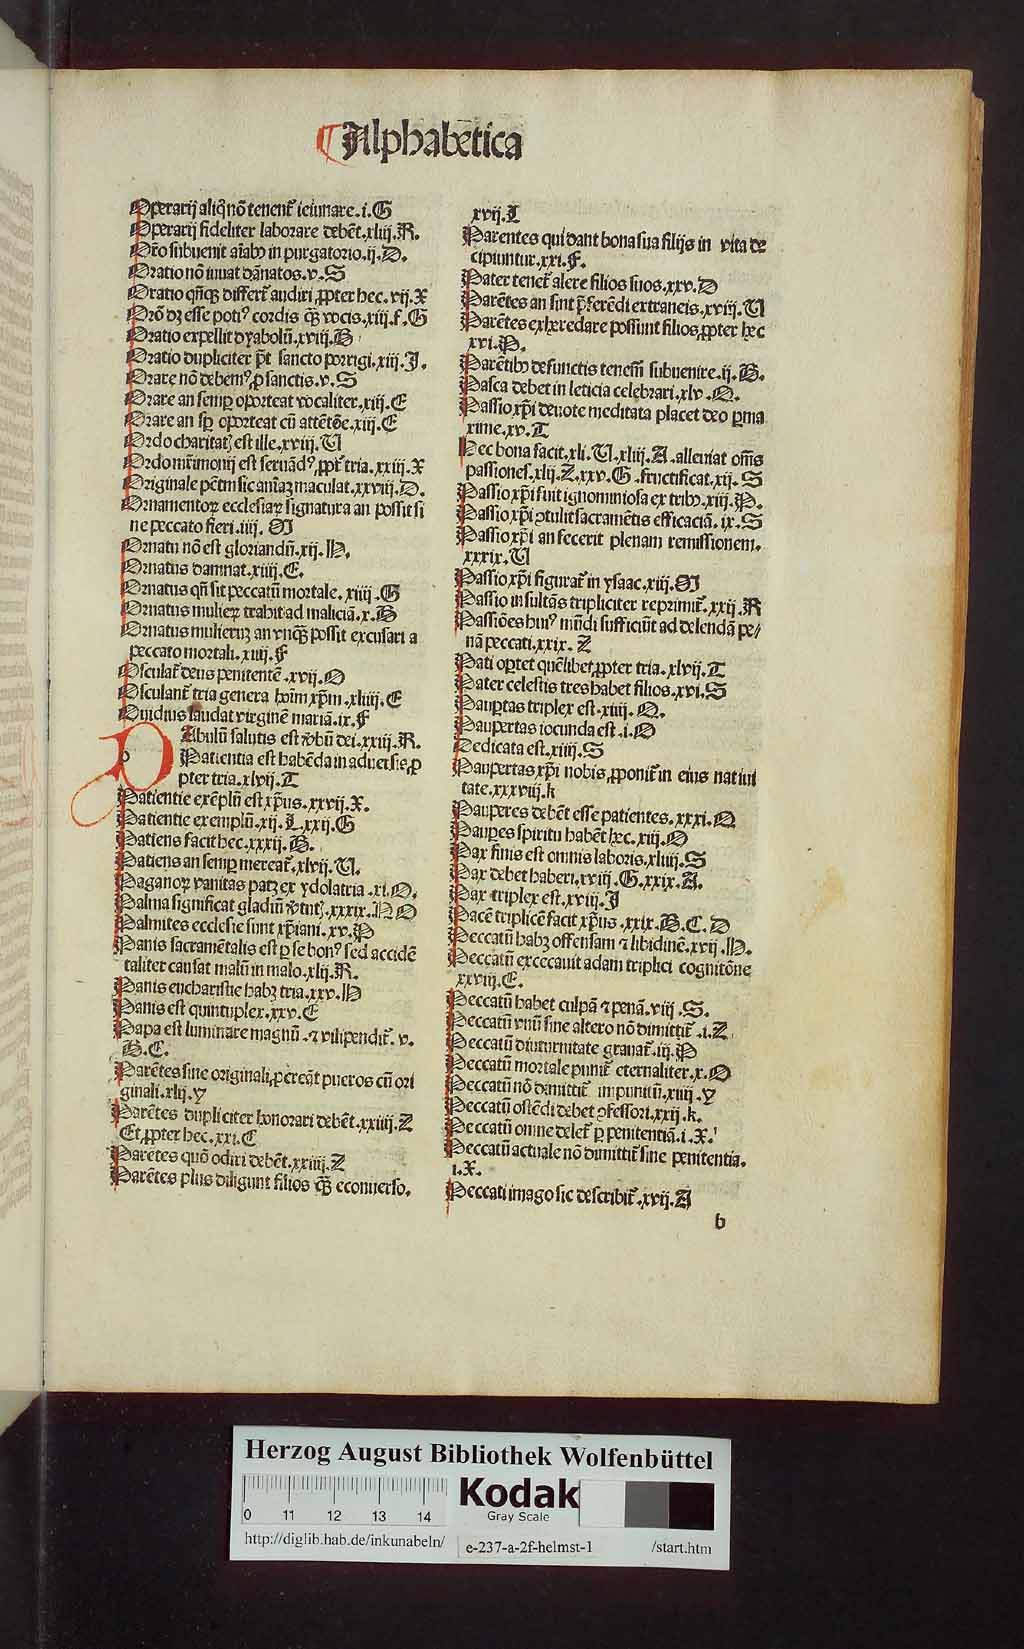 Alphabetica
Operarij aliq̄ nō tenent᷑ ieiunare.i.G
Operarij fideliter laborare debēt.xliij.R.
Or̄o subuenit aīabꝰ in purgatorio.ij.D.
Oratio nō iuuat dānatos.v.S
Oratio qn̄qꝫ differt᷑ audiri ꝓpter hec.vij.X
Orō dꝫ esse potiꝰ cordis qꝫ̄ vocis.xiij.f.G
Oratio expellit dyabolū.xviij.B
Oratio dupliciter pōt sancto porrigi.xiij.J.
Orare nō debemꝰ ꝓ sanctis.v.S
Orare an semꝑ oporteat vocaliter.xiij.E
Orare an sꝑ oporteat cū attētōe.xiij.E
Ordo charitatꝭ est ille.xviij.U
Ordo mr̄imonij est seruādꝰ ꝓpt᷑ tria.xxiij.X
Originale pctm̄ sic aniaꝫ maculat.xxviij.D.
Ornamentoꝝ ecclesiaꝝ signatura an possit si
ne peccato fieri.iiij.M
Ornatu nō est gloriandū.xij.N.
Ornatus damnat.xiiij.E.
Ornatus qn̄ sit peccatū mortale.xiiij.G
Ornatus mulieꝝ trahit ad maliciā.x.B
Ornatus mulierum an vnqꝫ̄ possit excusari a
peccato mortali.xiiij.F
Osculat᷑ deus penitentē.xvij.O
Osculant᷑ tria genera hoīm xp̄m.xliiij.E
Ouidius laudat virginē mariā.ix.F
PAbulū salutis est v̄bū dei.xxiij.R.
Patientia est habēda in aduersis ꝓ
pter tria.xlvij.T
Patientie exēplū est xp̄us.xxvij.X.
Patientie exemplū.xij.L.xxij.G
Patiens facit hec.xxxij.B.
Patiens an semꝑ mereat᷑.xlvij.U.
Paganoꝝ vanitas patꝫ ex ydolatria.xi.O.
Palma significat gladiū v̄tutꝭ.xxxix.N O
Palmites ecclesie sunt xp̄iani.xv.P
Panis sacramētalis est ꝑ se bonꝰ sed accidē
taliter causat malū in malo.xlij.R.
Panis eucharistie habꝫ tria.xxv.N
Panis est quintuplex.xxv.E
Papa est luminare magnū.⁊ vilipendit᷑.v.
B.C.
Parētes sine originali ꝓcreāt pueros cū ori
ginali.xlij.Y
Parētes dupliciter honorari debēt.xxiiij.Z
Et ꝓpter hec.xxi.C
Parētes quō odiri debēt.xxiiij.Z
Parētes plus diligunt filios qꝫ̄ econuerso.
xvij.L
Parentes qui dant bona sua filijs in vita de
cipiuntur.xxi.F.
Pater tenet᷑ alere filios suos.xxv.D
Parētes an sint p̄ferēdi extraneis.xviij.U
Parētes exheredare possunt filios ꝓpter hec
xvi.P.
Parētibꝰ defunctis tenem̄ subuenire.ij.B.
Pasca debet in leticia celebrari.xlv.Q.
Passio xp̄i deuote meditata placet deo ꝑma
xime.xv.T
Hec bona facit.xli.U.xliij.A.alleuiat om̄s
passiones.xlij.Z.xxv.G.fructificat.xij.S
Passio xp̄i fuit ignominiosa ex tribꝰ.xiij.P.
Passio xp̄i ꝯtulit sacramētis efficaciā.ix.S
Passio xp̄i an fecerit plenam remissionem.
xxxix.U
Passio xp̄i figurat᷑ in ysaac.xiij.M
Passio insultās tripliciter reprimit᷑.xxij.R
Passiōes huiꝰ mūdi sufficiūt ad delendā pe/
nā peccati.xxix.Z
Pati oꝑtet quēlibet ꝓpter tria.xlvij.T
Pater celestis tres habet filios.xvi.S
Pauꝑtas triplex est.xiiij.Q.
Paupertas iocunda est.i.O
Dedicata est.xiiij.S
Paupertas xp̄i nobis ꝓponit᷑ in eius natiui
tate.xxxviij.k
Pauperes debēt esse patientes.xxxi.Q
Pauꝑes spiritu habēt hec.xiij.O
Pax finis est omnis laboris.xliiij.S
Pax debet haberi.xviij.G.xxix.A.
Pax triplex est.xviij.J
Pacē triplicē facit xp̄us.xxix.B.C.D
Peccatū habꝫ offensam ⁊ libidinē.xvij.N.
Peccatū excecauit adam triplici cognitōne
xxviij.E.
Peccatū habet culpā ⁊ penā.viij.S.
Peccatū vnū sine altero nō dimittit᷑.i.Z
Peccatū diuturnitate grauat᷑.iij.P
Peccatū mortale punit᷑ eternaliter.x.O
Peccatū nō dimittit᷑ impunitū.xiiij.Y
Peccatū ostēdi debet ꝯfessori.xxij.k.
Peccatū omne delet᷑ ꝑ penitentiā.i.X.
Peccatū actuale nō dimittit᷑ sine penitentia.
i.X.
Peccati imago sic describit᷑.xvij.A
b
Herzog August Bibliothek Wolfenbüttel
0 11 12 13 14
Kodak
Gray Scale
http://diglib.hab.de/inkunabeln/
e-237-a-2f-helmst-1
/start.htm